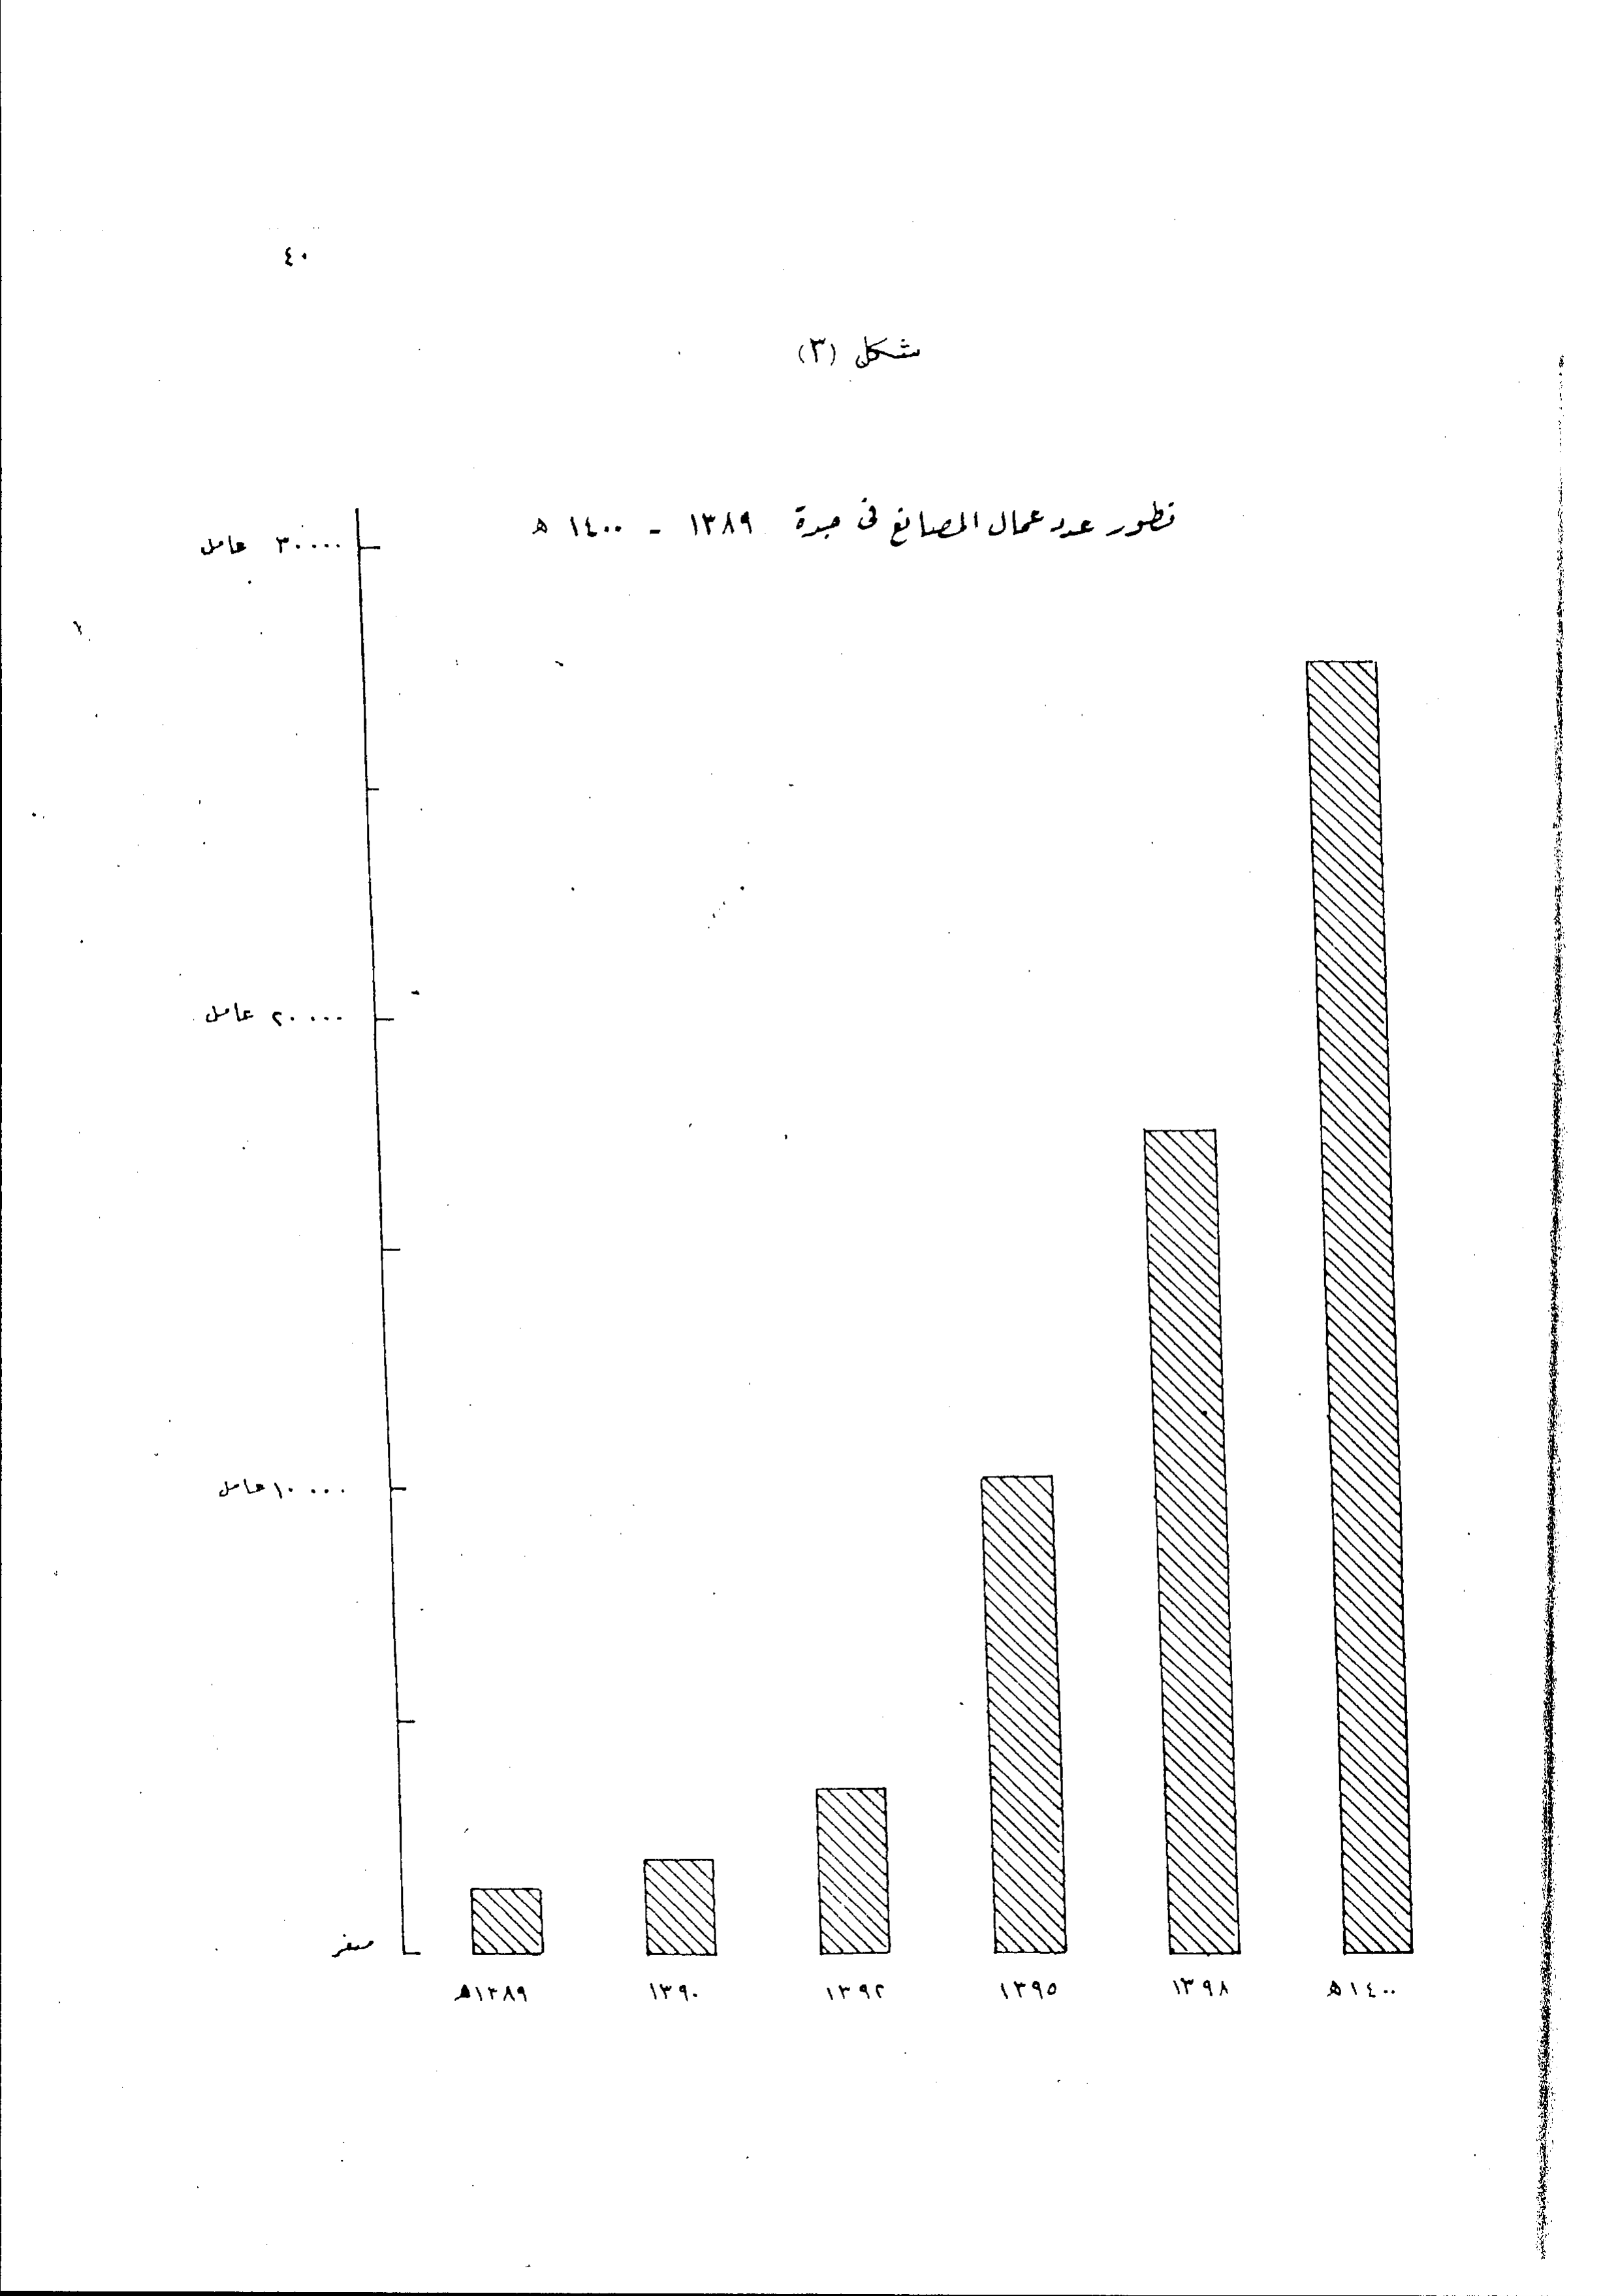 ٤٠
شكل (٣)
تطور عدد عمال المصانع فى جدة ١٣٨٩ - ١٤٠٠ ه
٣٠٠٠٠ عامل
٢٠٠٠٠ عامل
١٠٠٠٠ عامل
صفر
١٣٨٩ه ١٣٩٠ ١٣٩٢ ١٣٩٥ ١٣٩٨ ١٤٠٠ه